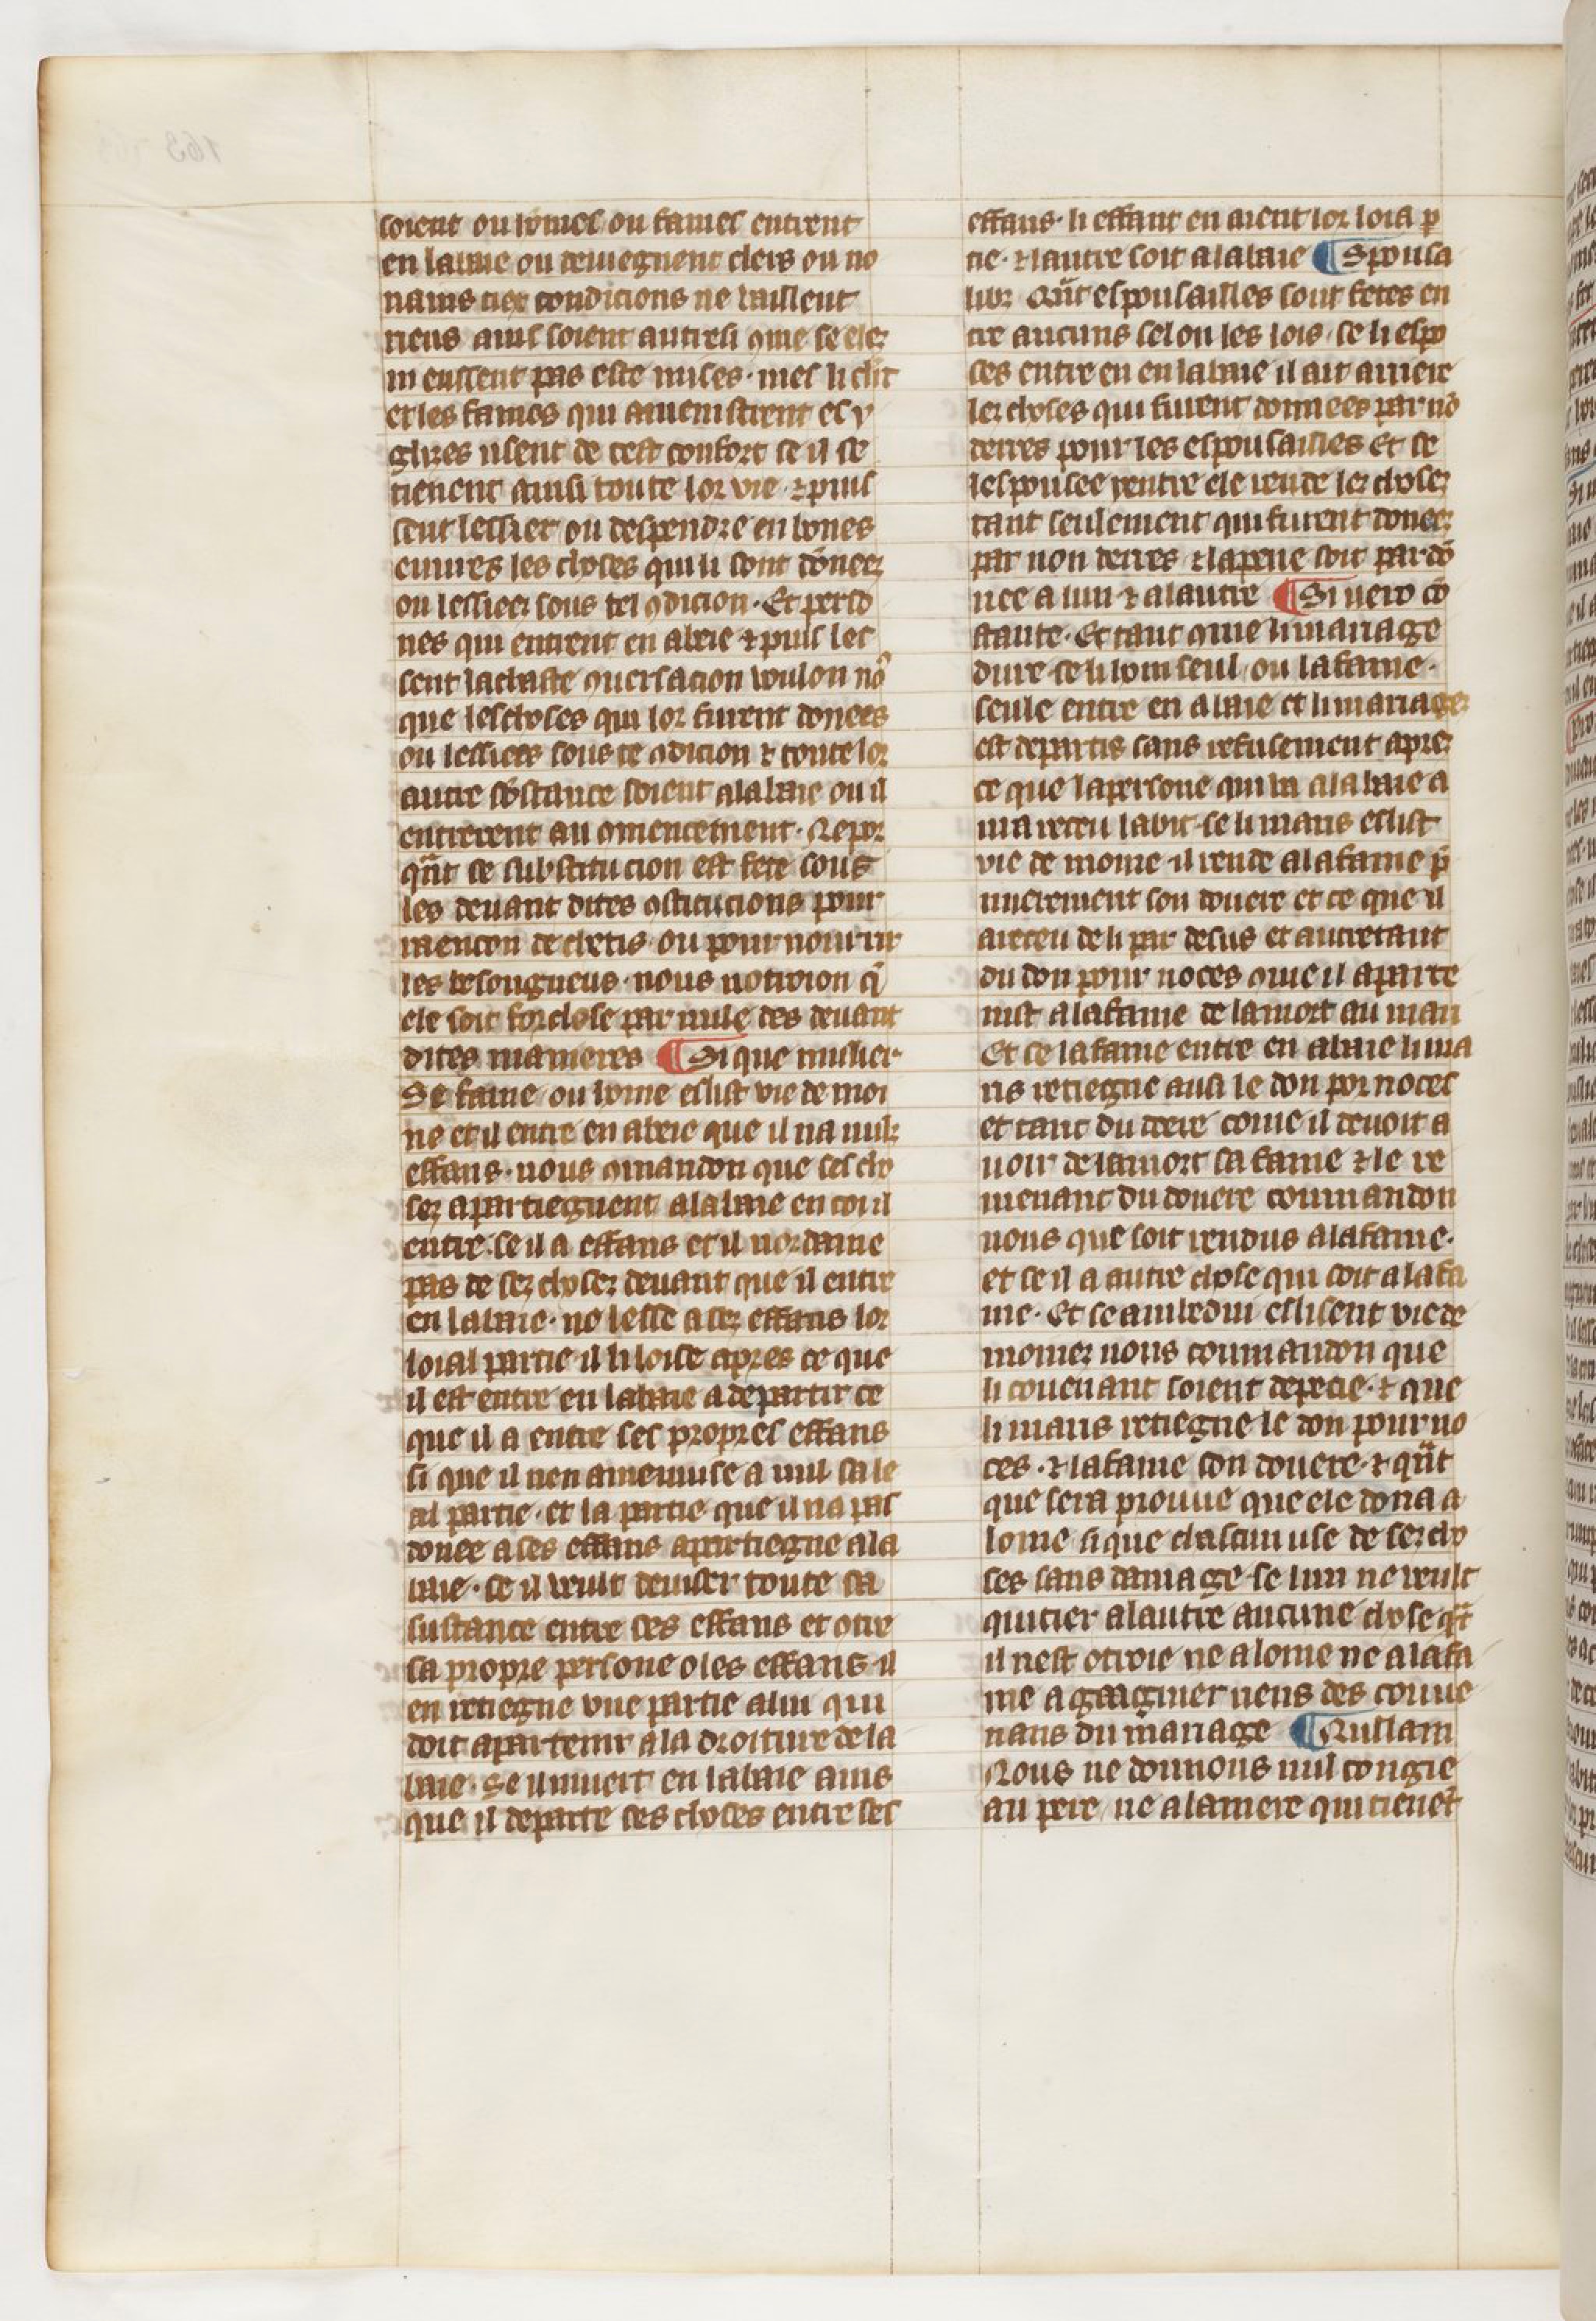 soient ou homes ou fames entrent
en labaie ou deuiegnent clers ou no
nains tiex condicions ne vaillent
riens ains soient autresi ꝯme se elez
ni eussent pas este mises· mes li clerc
et les fames qui amenistrent es y
glizes usent de cest confort se il se
tienent ainsi toute lor vie · ⁊ puis
sent lessier ou despendre en bones
euures les choses qui li sont dōneez
ou lessieez sous tel ꝯdicion· Et perso
nes qui entrent en abeie ⁊ puis les
sent la chaste ꝯuersacion voulon noꝰ
que les choses qui lor furent donees
ou lessiees sous te ꝯdicion ⁊ toute lor
autre sb̄stance soient a labaie ou il
entrerent au ꝯmencement· Ne por
qn̄t se substitucion est fete sous
les deuant dites ꝯstitucions pour
raencon de chetis ou pour nourrir
les besongneus · nous notroion q̄
ele soit forclose par nule des deuant
dites manieres ¶ Si que mulier
Se fame ou home eslist vie de moi
ne et il entre en abeie que il na nulz
effans· nous ꝯmandon que ses cho
sez apartiegnent a labaie en coi il
entre· se il a effans et il nordaine
pas de sez chosez deuant que il entre
en labaie· no lesse a sez effans lor
loial partie il li loise apres ce que
il est entre en labaie a departir ce
que il a entre ses propres effans
si que il nen amenuise a nul sa le
al partie· et la partie que il na pas
donee a ses effans apartiegne a la
baie· se il veult deuiser toute sa
sustance entre ses effans et ꝯtre
sa propre persone o les effans il
en retiegne vne partie a lui qui
doit apartenir a la droiture de la
baie· Se il muert en labaie ains
que il departe ses choses entre ses
effans· li effant en aient lor loia p
tie· ⁊ lautre soit a labaie ¶ Sponsa
libz Qn̄t espousailles sont fetes en
tre aucuns selon les lois· se li espo
ses entre en en labaie il ait arriere
lez choses qui furent donnees par nō
derres pour les espousailles Et se
lespousee rentre ele rende lez chosez
tant seulement qui furent doneez
par non derres ⁊ la peine soit pardō
nee a lun ⁊ a lautre ¶ Si uero cō
stante· Et tant ꝯme li mariage
dure se li hom seul· ou la fame·
seule entre en abaie et li mariagez
est departis sans refusement aprez
ce que la persone qui va a labaie a
ura receu labit· se li maris eslist
vie de moine il rende a la fame p̄
mierement son douere et ce que il
a receu de li par desus et autretant
du don pour noces ꝯme il aparte
nist a la fame de la mort au mari
Et se la fame entre en abaie li ma
ris retiegne ausi le don por noces
et tant du deere come il deuoit a
uoir de la mort sa fame ⁊ le re
menant du douere commandon
nous que soit rendus a la fame·
et se il a autre chose qui soit a la fa
me· Et se ambedui eslisent vie de
moinez nous commandon que
li couenant soient depecie· ⁊ que
li maris retiegne le don pour no
ces· ⁊ la fame son douere· ⁊ qn̄t
que sera prouue que ele dona a
lome si que chascun use de sez cho
ses sans damage· se lun ne veult
quitier a lautre aucune chose qr̄
il nest otroie ne a lome ne a la fa
me a gaagnier riens des conue
nans du mariage ¶ Nullam
Nous ne donnons nul congie
au pere ne a la mere qui tienēt